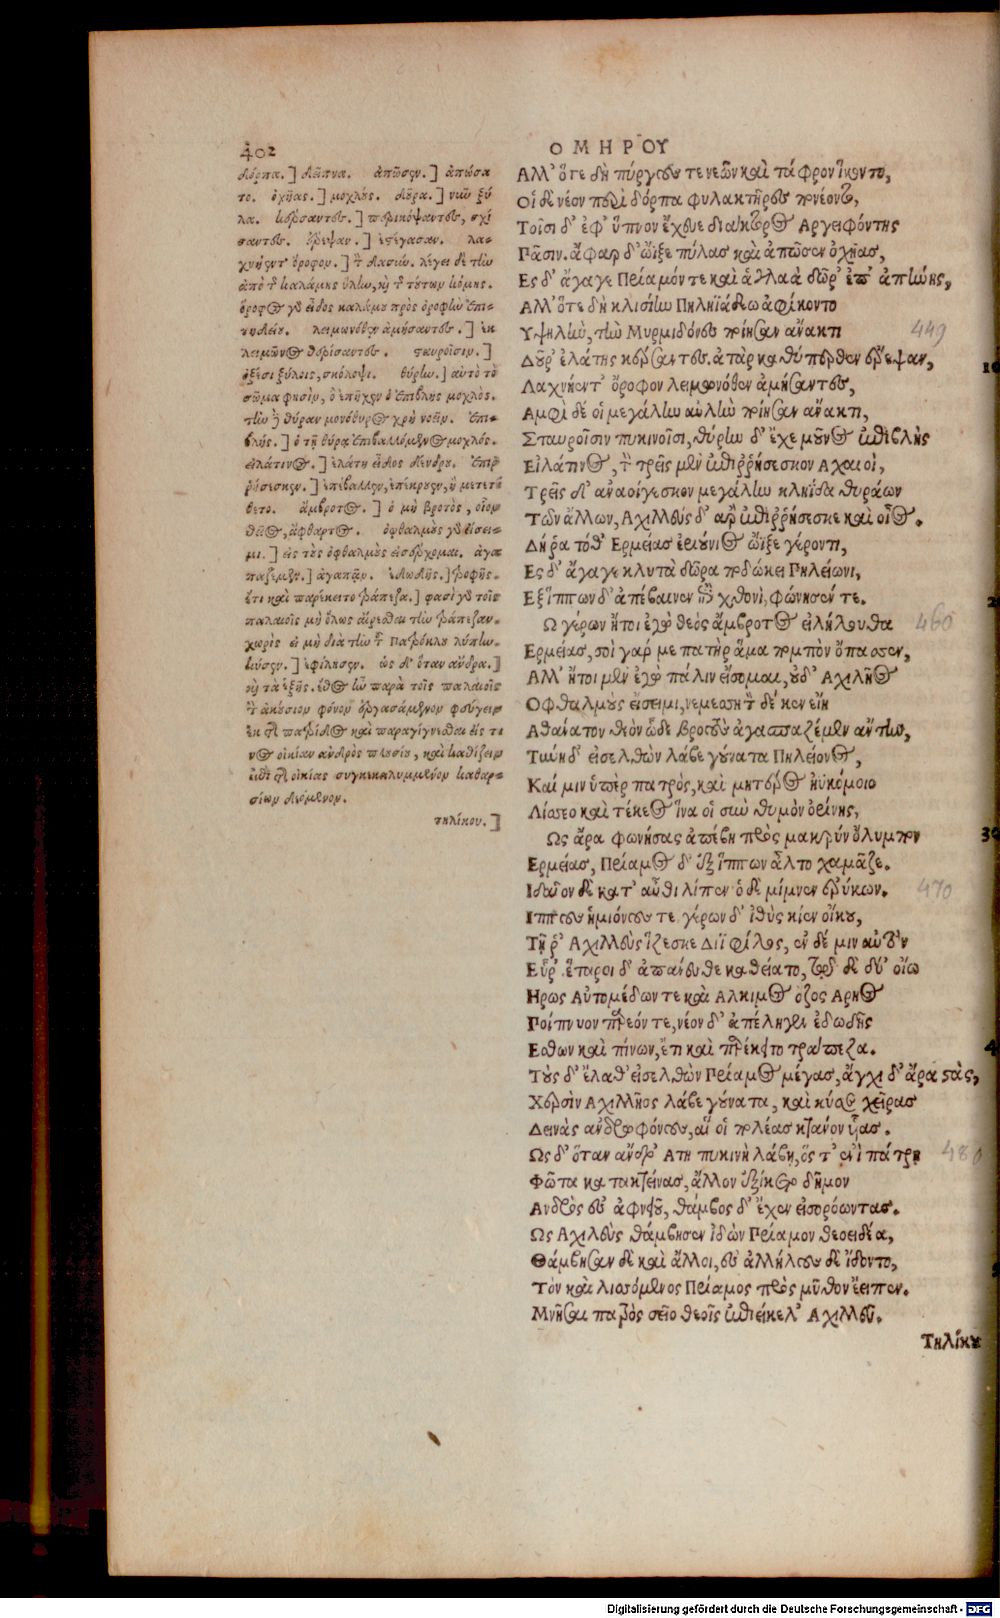 402
ΟΜΗΡΟΥ
δόρπα.] δεῖπνα. ἀπῶσεν.] ἀπώσα
το. ὀχῆας.] μοχλούς. δοῦρα.] νιῦ ξύ
λα. κέρσαντες.] περικόψαντες, σχί
σαντες. ἔρεψαν.] ἐστέγασαν. λα-
χνήεντ' ὄροφον.] τὸν δασύν. λέγει δὲ τὴν
ἀπὸ τοῦ καλάμης ὕλην, καὶ τοῦ τούτων κόμης.
ὄροφος γὰρ εἶδος καλάμου πρὸς ὀροφὴν ἐπι-
τηδείου. λειμωνόθεν ἀμήσαντες.] ἐκ
λειμῶνος θερίσαντες. σταυροῖσιν.]
ὀξέσι ξύλοις, σκόλοψι. θύρην.] αὐτὸ τὸ
σῶμα φησὶν, ὃ ἐπῆχεν ὁ ἐπιβλὴς μοχλός.
τὴν δὲ θύραν μονόθυρος χρὴ νοεῖν. ἐπι-
βλής.] ὁ τῇ θύρᾳ ἐπιβαλλόμενος μοχλός.
εἰλάτινος.] ἐλάτη εἶδος δένδρου. ἐπιῤ
ῥήσεσκεν.] ἐπέβαλλεν, ἐπέκρουεν, ἢ μετετί
θετο. ἄμβροτος.] ὁ μὴ βροτὸς, οἷον
θεῖος, ἄφθαρτος. ὀφθαλμοὺς γὰρ εἴσει-
μι.] εἰς τοὺς ὀφθαλμοὺς εἰσέρχομαι. ἀγα
παζέμεν.] ἀγαπᾷν. ἐδωδῆς.] τροφῆς.
ἔτι καὶ παρέκειτο τράπεζα.] φασὶ γὰρ τοῖς
παλαιοῖς μὴ ὅλως αἴρεσθαι τὴν τράπεζαν.
χωρὶς εἰ μὴ διὰ τὴν τοῦ Πατρόκλου λύπην.
κύσεν.] ἐφίλησεν. ὡς δ' ὅταν ἄνδρα.]
καὶ τὰ ἑξῆς. ἔθος ἦν παρὰ τοῖς παλαιοῖς
τὸν ἀκούσιον φόνον ἐργασάμενον φεύγειν
ἐκ τῆς πατρίδος καὶ παραγίγνεσθαι εἴς τι
νος οἰκίαν ἀνδρὸς πλουσίου, καὶ καθίζειν
ἐπὶ τῆς οἰκίας συγκεκαλυμμένον καθαρ-
σίων δεόμενον.
τηλίκου.]
Αλλ' ὅτε δὴ πύργους τε νεῶν καὶ τάφρον ἵκοντο,
Οἱ δὲ νέον περὶ δόρπα φυλακτῆρες πονέοντο,
Τοῖσι δ' ἐφ' ὕπνον ἔχευε διάκτορος Αργειφόντης
Πᾶσιν. ἄφαρ δ' ὤϊξε πύλας καὶ ἀπῶσεν ὀχῆας,
Ες δ' ἄγαγε Πρίαμόν τε καὶ ἀγλαὰ δῶρ' ἐπ' ἀπήνης,
Αλλ' ὅτε δὴ κλισίην Πηληϊάδεω ἀφίκοντο
Υψηλὴν, τὴν Μυρμιδόνες ποίησαν ἄνακτι
449
Δοῦρ' ἐλάτης κέρσαντες. ἀτὰρ καθύπερθεν ἔρεψαν,
Λαχνήεντ' ὄροφον λειμωνόθεν ἀμήσαντες,
Αμφὶ δέ οἱ μεγάλην αὐλὴν ποίησαν ἄνακτι,
Σταυροῖσιν πυκινοῖσι, θύρην δ' ἔχε μοῦνος ἐπιβλὴς
Εἰλάτινος, τὸν τρεῖς μὲν ἐπιῤῥήσεσκον Αχαιοὶ,
Τρεῖς δ' ἀναοίγεσκον μεγάλην κληῖδα θυράων
Τῶν ἄλλων, Αχιλλεὺς δ' ἄρ' ἐπιῤῥήσεσκε καὶ οἶος.
Δή ῥα τόθ' Ερμείας ἐριούνιος ὤϊξε γέροντι,
Ες δ' ἄγαγε κλυτὰ δῶρα ποδώκεϊ Πηλείωνι,
Εξ ἵππων δ' ἀπέβαινεν ἐπὶ χθονὶ, φώνησέν τε.
Ω γέρων ἤτοι ἐγὼ θεὸς ἄμβροτος εἰλήλουθα
460
Ερμείας, σοὶ γάρ με πατὴρ ἅμα πομπὸν ὄπασσεν,
Αλλ' ἤτοι μὲν ἐγὼ πάλιν εἴσομαι, οὐδ' Αχιλῆος
Οφθαλμοὺς εἴσειμι, νεμεσητὸν δέ κεν εἴη
Αθάνατον θεὸν ὧδε βροτοὺς ἀγαπαζέμεν ἄντην,
Τύνη δ' εἰσελθὼν λάβε γούνατα Πηλείωνος,
Καί μιν ὑπὲρ πατρὸς, καὶ μητέρος ἠϋκόμοιο
Λίσσεο καὶ τέκεος ἵνα οἱ σὺν θυμὸν ὀρίνης,
Ως ἄρα φωνήσας ἀπέβη πρὸς μακρὸν ὄλυμπον
Ερμείας, Πρίαμος δ' ἐξ ἵππων ἆλτο χαμᾶζε.
Ιδαῖον δὲ κατ' αὖθι λίπεν ὁ δὲ μίμνεν ἐρύκων.
470
Ιππους ἡμιόνους τε γέρων δ' ἰθὺς κίεν οἴκου,
Τῇ ῥ' Αχιλλεὺς ἵζεσκε Διῒ φίλος, ἐν δέ μιν αὐτὸν
Εὗρ'. ἕταροι δ' ἀπάνευθε καθείατο, τῷ δὲ δύ' οἴω
Ηρως Αὐτομέδων τε καὶ Αλκιμος ὄζος Αρηος
Ποίπνυον παρεόντε, νέον δ' ἀπέληγεν ἐδωδῆς
Εσθων καὶ πίνων, ἔτι καὶ παρέκειτο τράπεζα.
Τοὺς δ' ἔλαθ' εἰσελθὼν Πρίαμος μέγας, ἄγχι δ' ἄρα στὰς,
Χερσὶν Αχιλλῆος λάβε γούνατα, καὶ κύσε χεῖρας
Δεινὰς ἀνδροφόνους, αἵ οἱ πολέας κτάνον υἷας.
Ως δ' ὅταν ἄνδρ' Ατη πυκινὴ λάβῃ, ὅς τ' ἐνὶ πάτρῃ
480
Φῶτα κατακτείνας, ἄλλον ἐξίκετο δῆμον
Ανδρὸς ἐς ἀφνειοῦ, θάμβος δ' ἔχεν εἰσορόωντας.
Ως Αχιλεὺς θάμβησεν ἰδὼν Πρίαμον θεοειδέα,
Θάμβησαν δὲ καὶ ἄλλοι, ἐς ἀλλήλους δὲ ἴδοντο,
Τὸν καὶ λισσόμενος Πρίαμος πρὸς μῦθον ἔειπεν.
Μνῆσαι πατρὸς σεῖο θεοῖς ἐπιείκελ' Αχιλλεῦ.
Τηλίκου
Digitalisierung gefördert durch die Deutsche Forschungsgemeinschaft - DFG